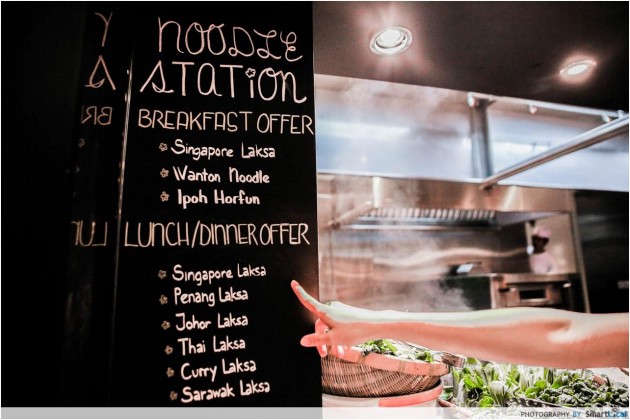 NOODLE
STATION
BREAKFAST OFFER
Singapore Laksa
Wanton Noodle
Ipoh Horfun
LUNCH/DINNER OFFER
Singapore Laksa
Penang Laksa
Johor Laksa
Thai Laksa
Curry Laksa
Sarawak Laksa
PHOTOGRAPHY BY SmartLocal